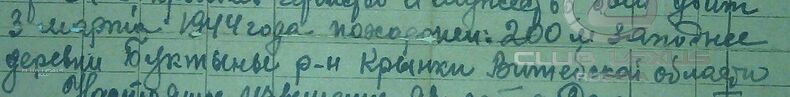 и
был убит
3 марта 1944 года похоронен: 200 м западнее
деревни Буктыны р-н Крынки Витебской области
CLUB LEXUS